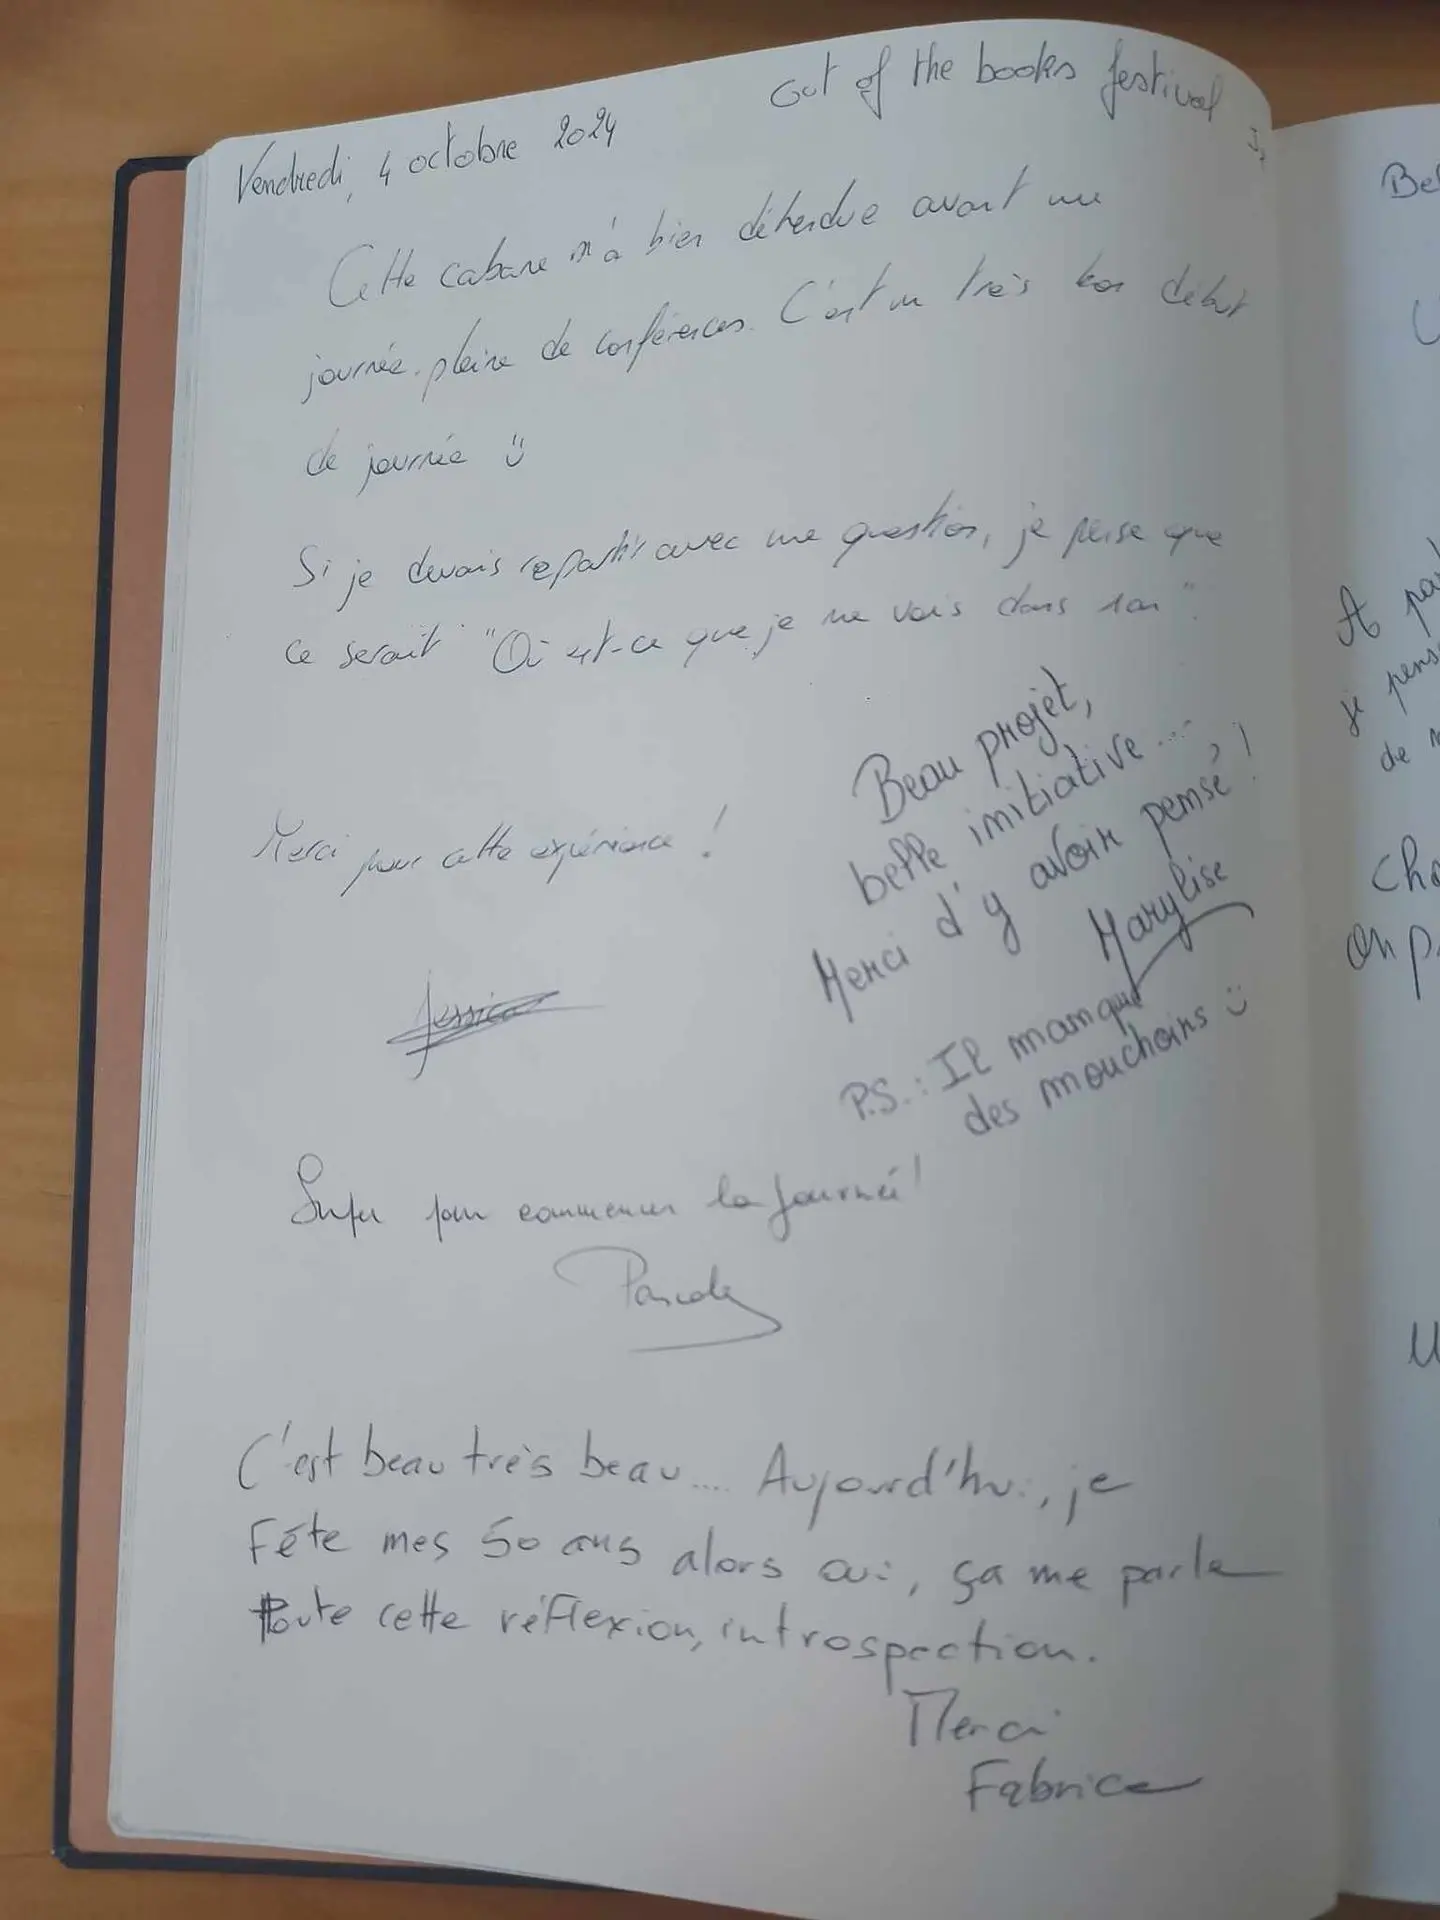 Vendredi, 4 octobre 2024
Out of the books festival
Cette cabane m'a bien détendue avant une
journée pleine de conférences. C'est un très bon début
de journée ü
Si je devais repartir avec une question, je pense que
ce serait "Où est-ce que je me vois dans 10 an".
Merci pour cette expérience !
Jessica
Beau projet,
belle initiative...
Merci d'y avoir pensé !
Marylise
P.S.: Il manque
des mouchoirs ü
Super pour commencer la journée !
Pascale
C'est beau très beau.... Aujourd'hui, je
Fête mes 50 ans alors oui, ça me parle
toute cette réflexion, introspection.
Merci
Fabrice
Bel
A par
je pens
de m
Cho
On p